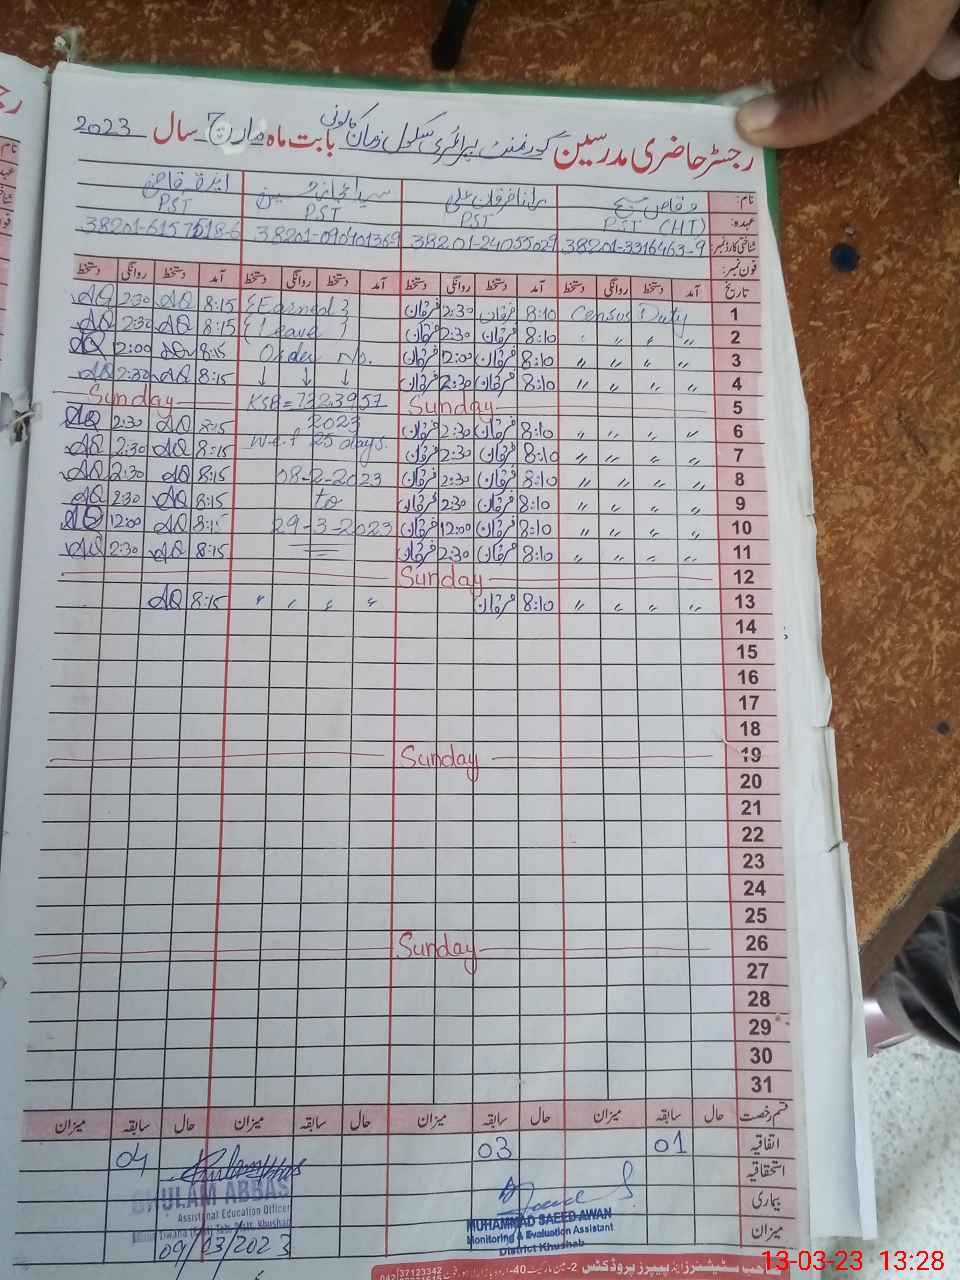 رجسٹر حاضری مدرسین گورنمنٹ پرائمری سکول زمان کالونی بابت ماہ مارچ سال 2023
نام: وقاص مسیح رانا فرقان علی
عہدہ: PST (HT) PST PST PST
شناختی کارڈ نمبر: 38201-3316463-9 38201-24055029 38201-090101369
فون نمبر:
تاریخ آمد دستخط روانگی دستخط آمد دستخط روانگی دستخط آمد دستخط روانگی دستخط آمد دستخط روانگی دستخط
1 Census Duty 8:10 فرقان 2:30 فرقان {Earned} 8:15 AQ 2:30 AQ
2 〃 〃 〃 〃 8:10 فرقان 2:30 فرقان {Leave} 8:15 AQ 2:30 AQ
3 〃 〃 〃 〃 8:10 فرقان 12:00 فرقان Order No. 8:15 AQ 12:00 AQ
4 〃 〃 〃 〃 8:10 فرقان 2:30 فرقان ↓ ↓ ↓ 8:15 AQ 2:30 AQ
5 Sunday KSB=7323957 Sunday
6 〃 〃 〃 〃 8:10 فرقان 2:30 فرقان 2023 8:15 AQ 2:30 AQ
7 〃 〃 〃 〃 8:10 فرقان 2:30 فرقان W.e.f 25 days. 8:15 AQ 2:30 AQ
8 〃 〃 〃 〃 8:10 فرقان 2:30 فرقان 08-2-2023 8:15 AQ 2:30 AQ
9 〃 〃 〃 〃 8:10 فرقان 2:30 فرقان to 8:15 AQ 2:30 AQ
10 〃 〃 〃 〃 8:10 فرقان 12:00 فرقان 29-3-2023 8:15 AQ 12:00 AQ
11 〃 〃 〃 〃 8:10 فرقان 2:30 فرقان 8:15 AQ 2:30 AQ
12 Sunday
13 〃 〃 〃 〃 8:10 فرقان 〃 〃 〃 〃 8:15 AQ
14
15
16
17
18
19 Sunday
20
21
22
23
24
25
26 Sunday
27
28
29
30
31
قسم رخصت حال سابقہ میزان حال سابقہ میزان حال سابقہ میزان حال سابقہ میزان
اتفاقیہ 01 03 04
استحقاقیہ
بیماری
میزان
GHULAM ABBAS
Assistant Education Officer
09/03/2023
MUHAMMAD SAEED AWAN
Monitoring & Evaluation Assistant
District Khushab
37123342
13-03-23 13:28